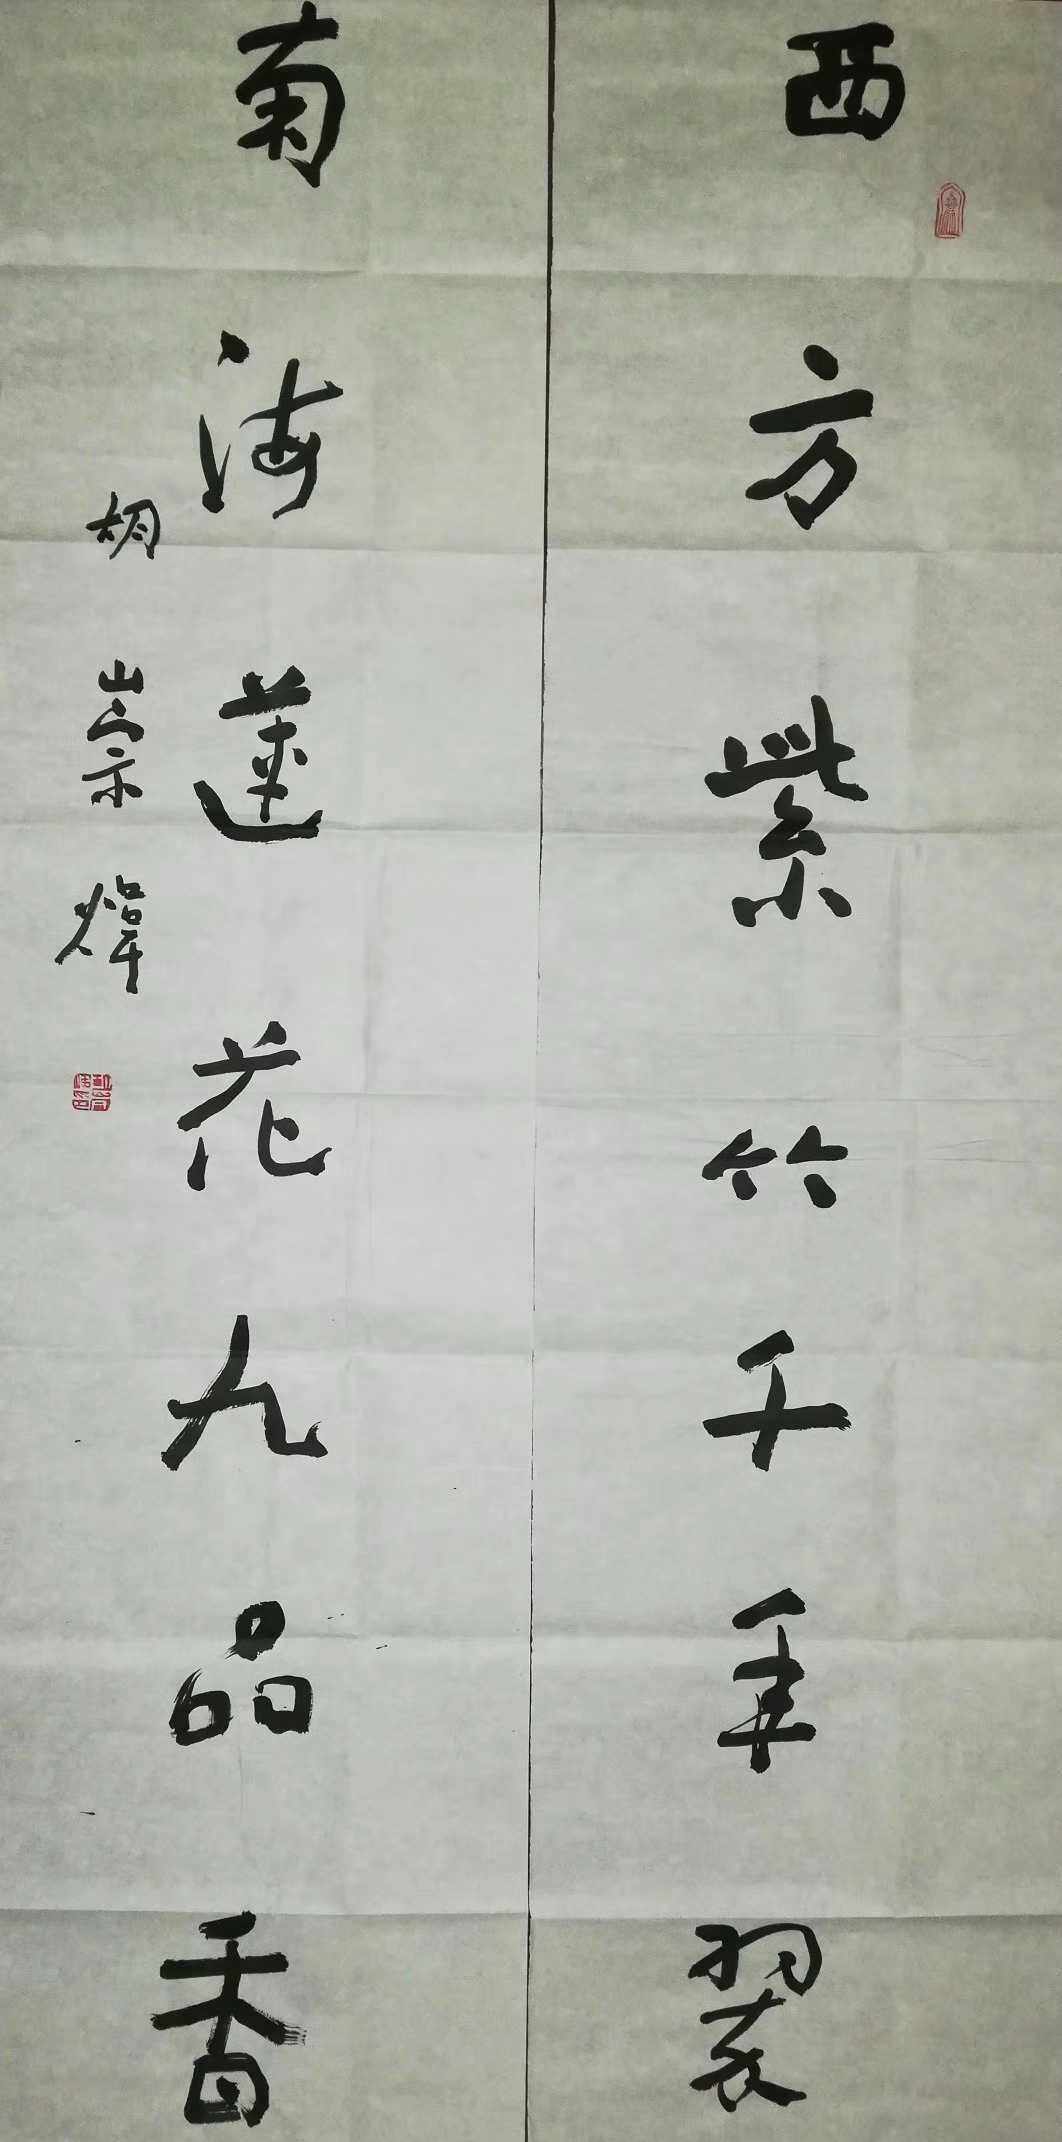 西方紫竹千年翠
南海蓮花九品香
胡崇煒